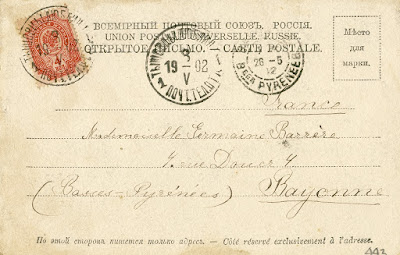 ВСЕМІРНЫЙ ПОЧТОВЫЙ СОЮЗЪ, РОССІЯ.
UNION POSTALE UNIVERSELLE, RUSSIE.
ОТКРЫТОЕ ПИСЬМО. — CARTE POSTALE.
Мѣсто
для
марки.
3
19 02
V
ПОЧ. ТЕЛ.
26-5
02
Bses PYRENEES
France
Mademoiselle Germaine Barrère
rue
(Basses-Pyrénées) Bayonne
На этой сторонѣ пишется только адресъ. — Côté réservé exclusivement à l'adresse.
442